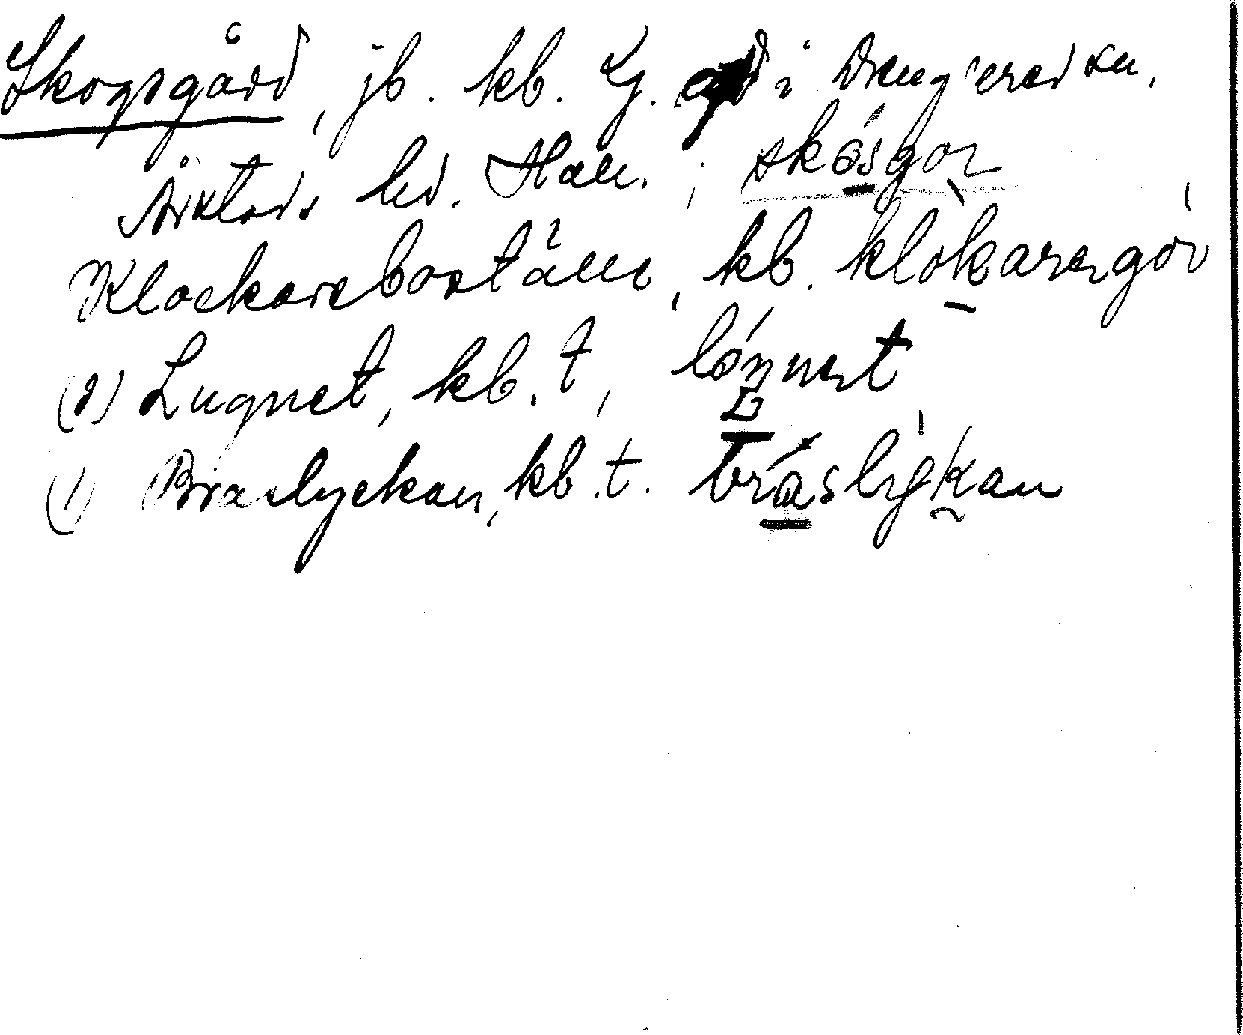 Skogsgård, jb. kb. Lj. gd i Drängsered sn,
Årstads hd. Hall. ; skósgor
Klockarebostället, kb. klokaregór
(2) Lugnet, kb. t, lóŋnet
(1) Braslyckan, kb. t. bráslykan